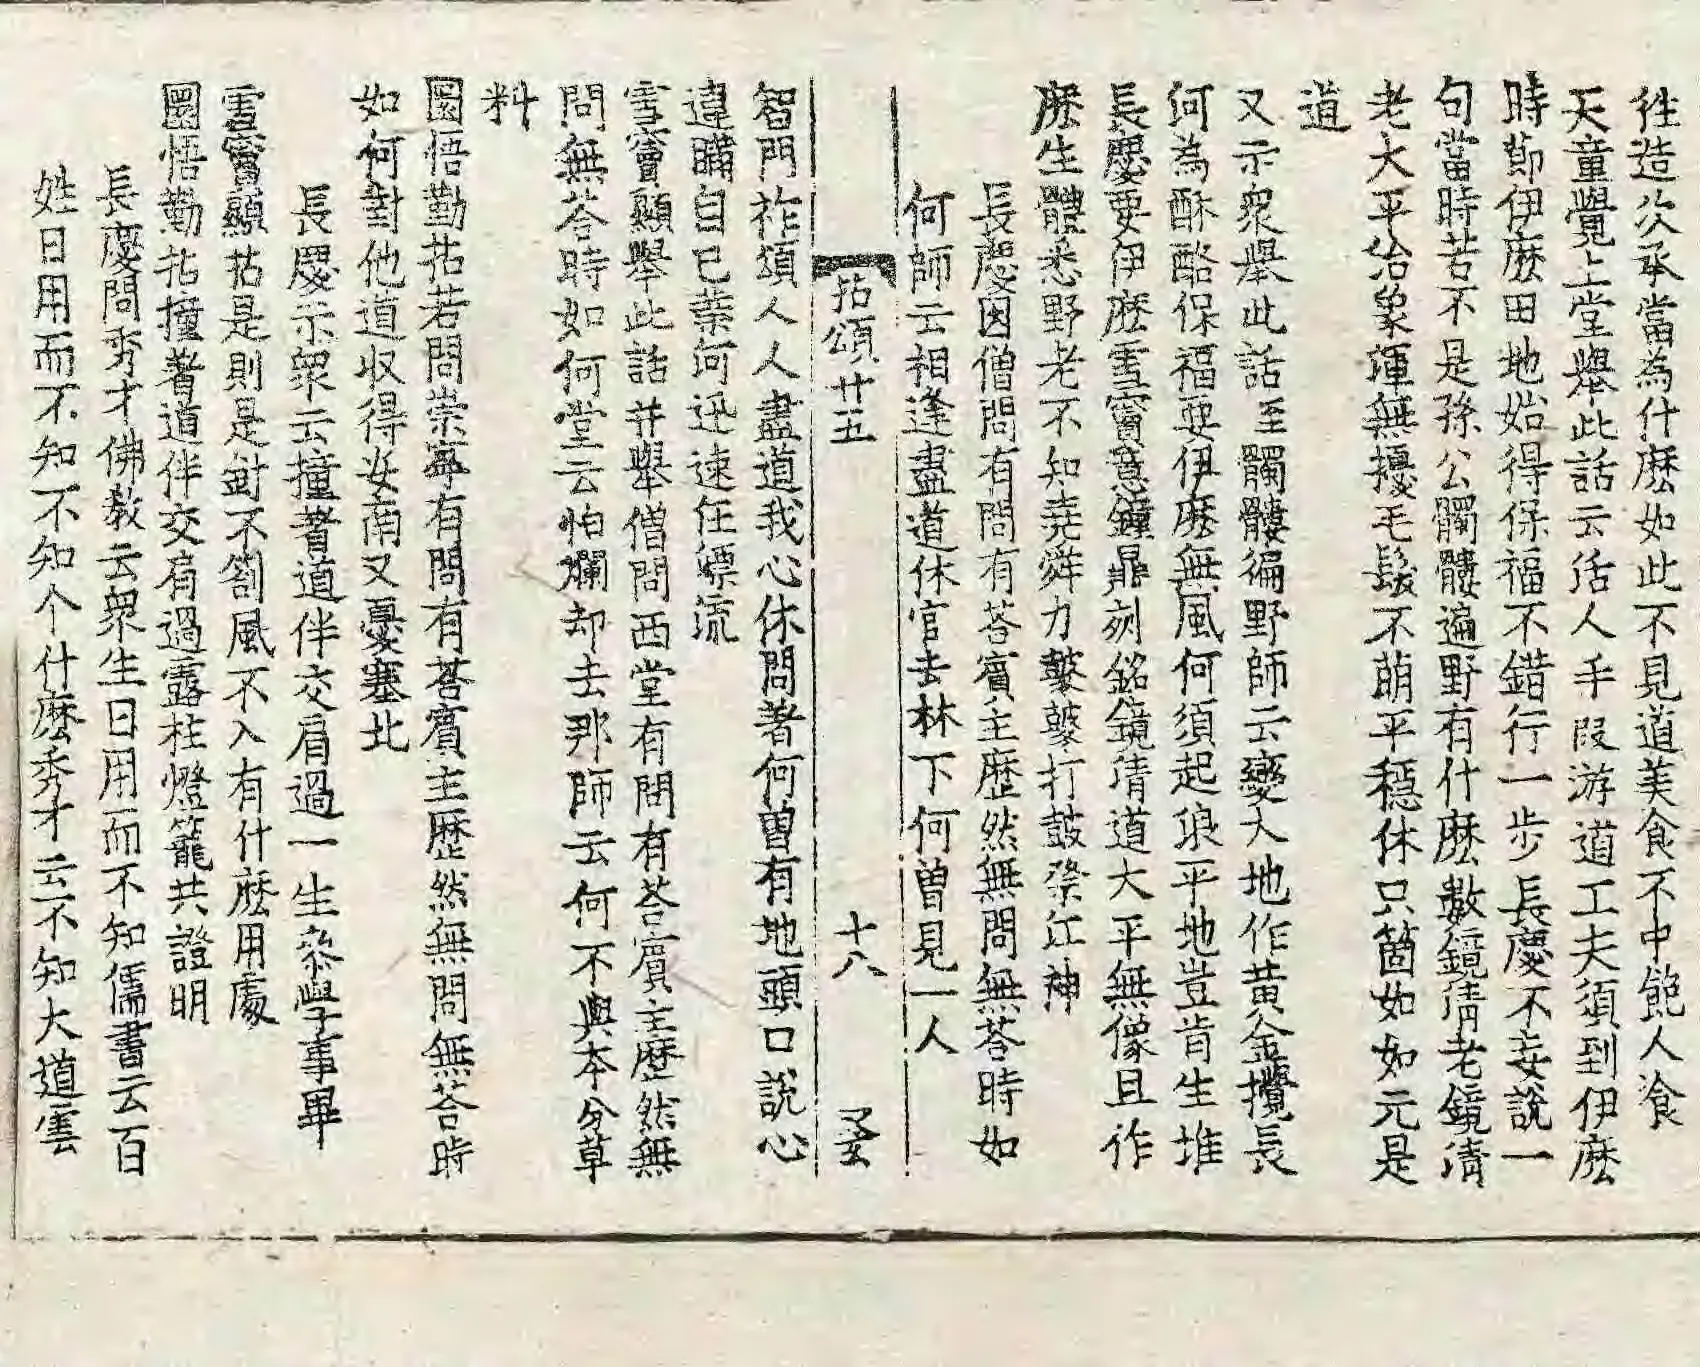 徃造次承當為什麽如此不見道美食不中飽人飡
天童覺上堂舉此話云活人手段游道工夫須到伊麽
時節伊麽田地始得保福不錯行一步長慶不妄說一
句當時若不是孫公髑髏遍野有什麽數鏡清老鏡清
老大平治象渾無擾毛髮不萌平穩休只箇如如元是
道
又示衆舉此話至髑髏徧野師云變大地作黄金攪長
河為酥酪保福要伊麽無風何須起浪平地豈肯生堆
長慶要伊麽雪竇意鐘鼎刻銘鏡清道大平無像且作
麽生體悉野老不知堯舜力鼕鼕打鼓祭江神
長慶因僧問有問有荅賓主歷然無問無荅時如
何師云相逢盡道休官去林下何曽見一人
拈頌廿五 十八
智門祚頌人人盡道我心休問著何曽有地頭口說心
違瞞自己業河迅速任漂流
雪竇顯舉此話并舉僧問西堂有問有荅賓主歷然無
問無荅時如何堂云怕爛却去那師云何不與本分草
料
圜悟勤拈若問崇寧有問有荅賓主歷然無問無荅時
如何對他道收得安南又憂塞北
長慶示衆云撞著道伴交肩過一生叅學事畢
雪竇顯拈是則是針不劄風不入有什麽用處
圜悟勤拈撞著道伴交肩過露柱燈籠共證明
長慶問秀才佛教云衆生日用而不知儒書云百
姓日用而不知不知个什麽秀才云不知大道雲